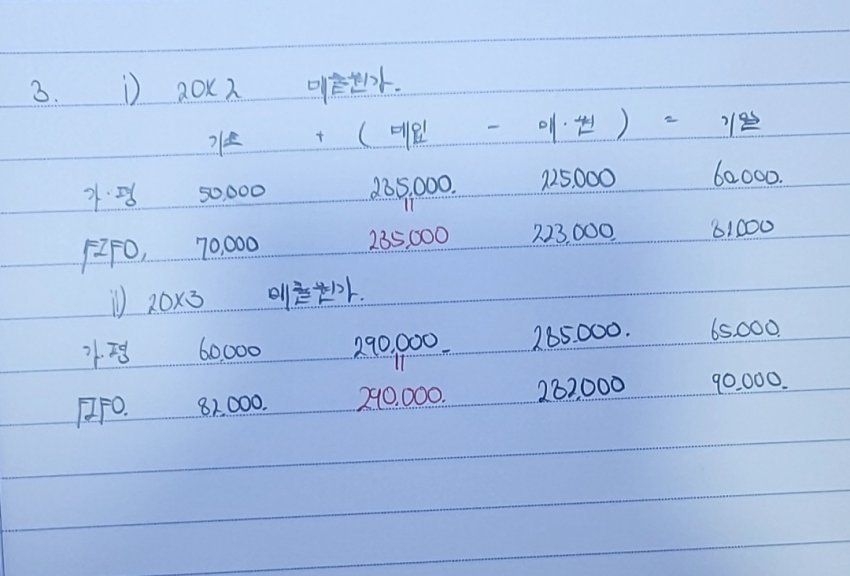 3. i) 20X2 매출원가.
기초 + ( 매입 - 매·원 ) = 기말
가·평 50,000 235,000. 225,000 60,000.
"
FIFO, 70,000 235,000 223,000 81,000
ii) 20X3 매출원가.
가·평 60,000 290,000. 285,000. 65,000
"
FIFO. 82,000. 290,000. 282,000 90,000.